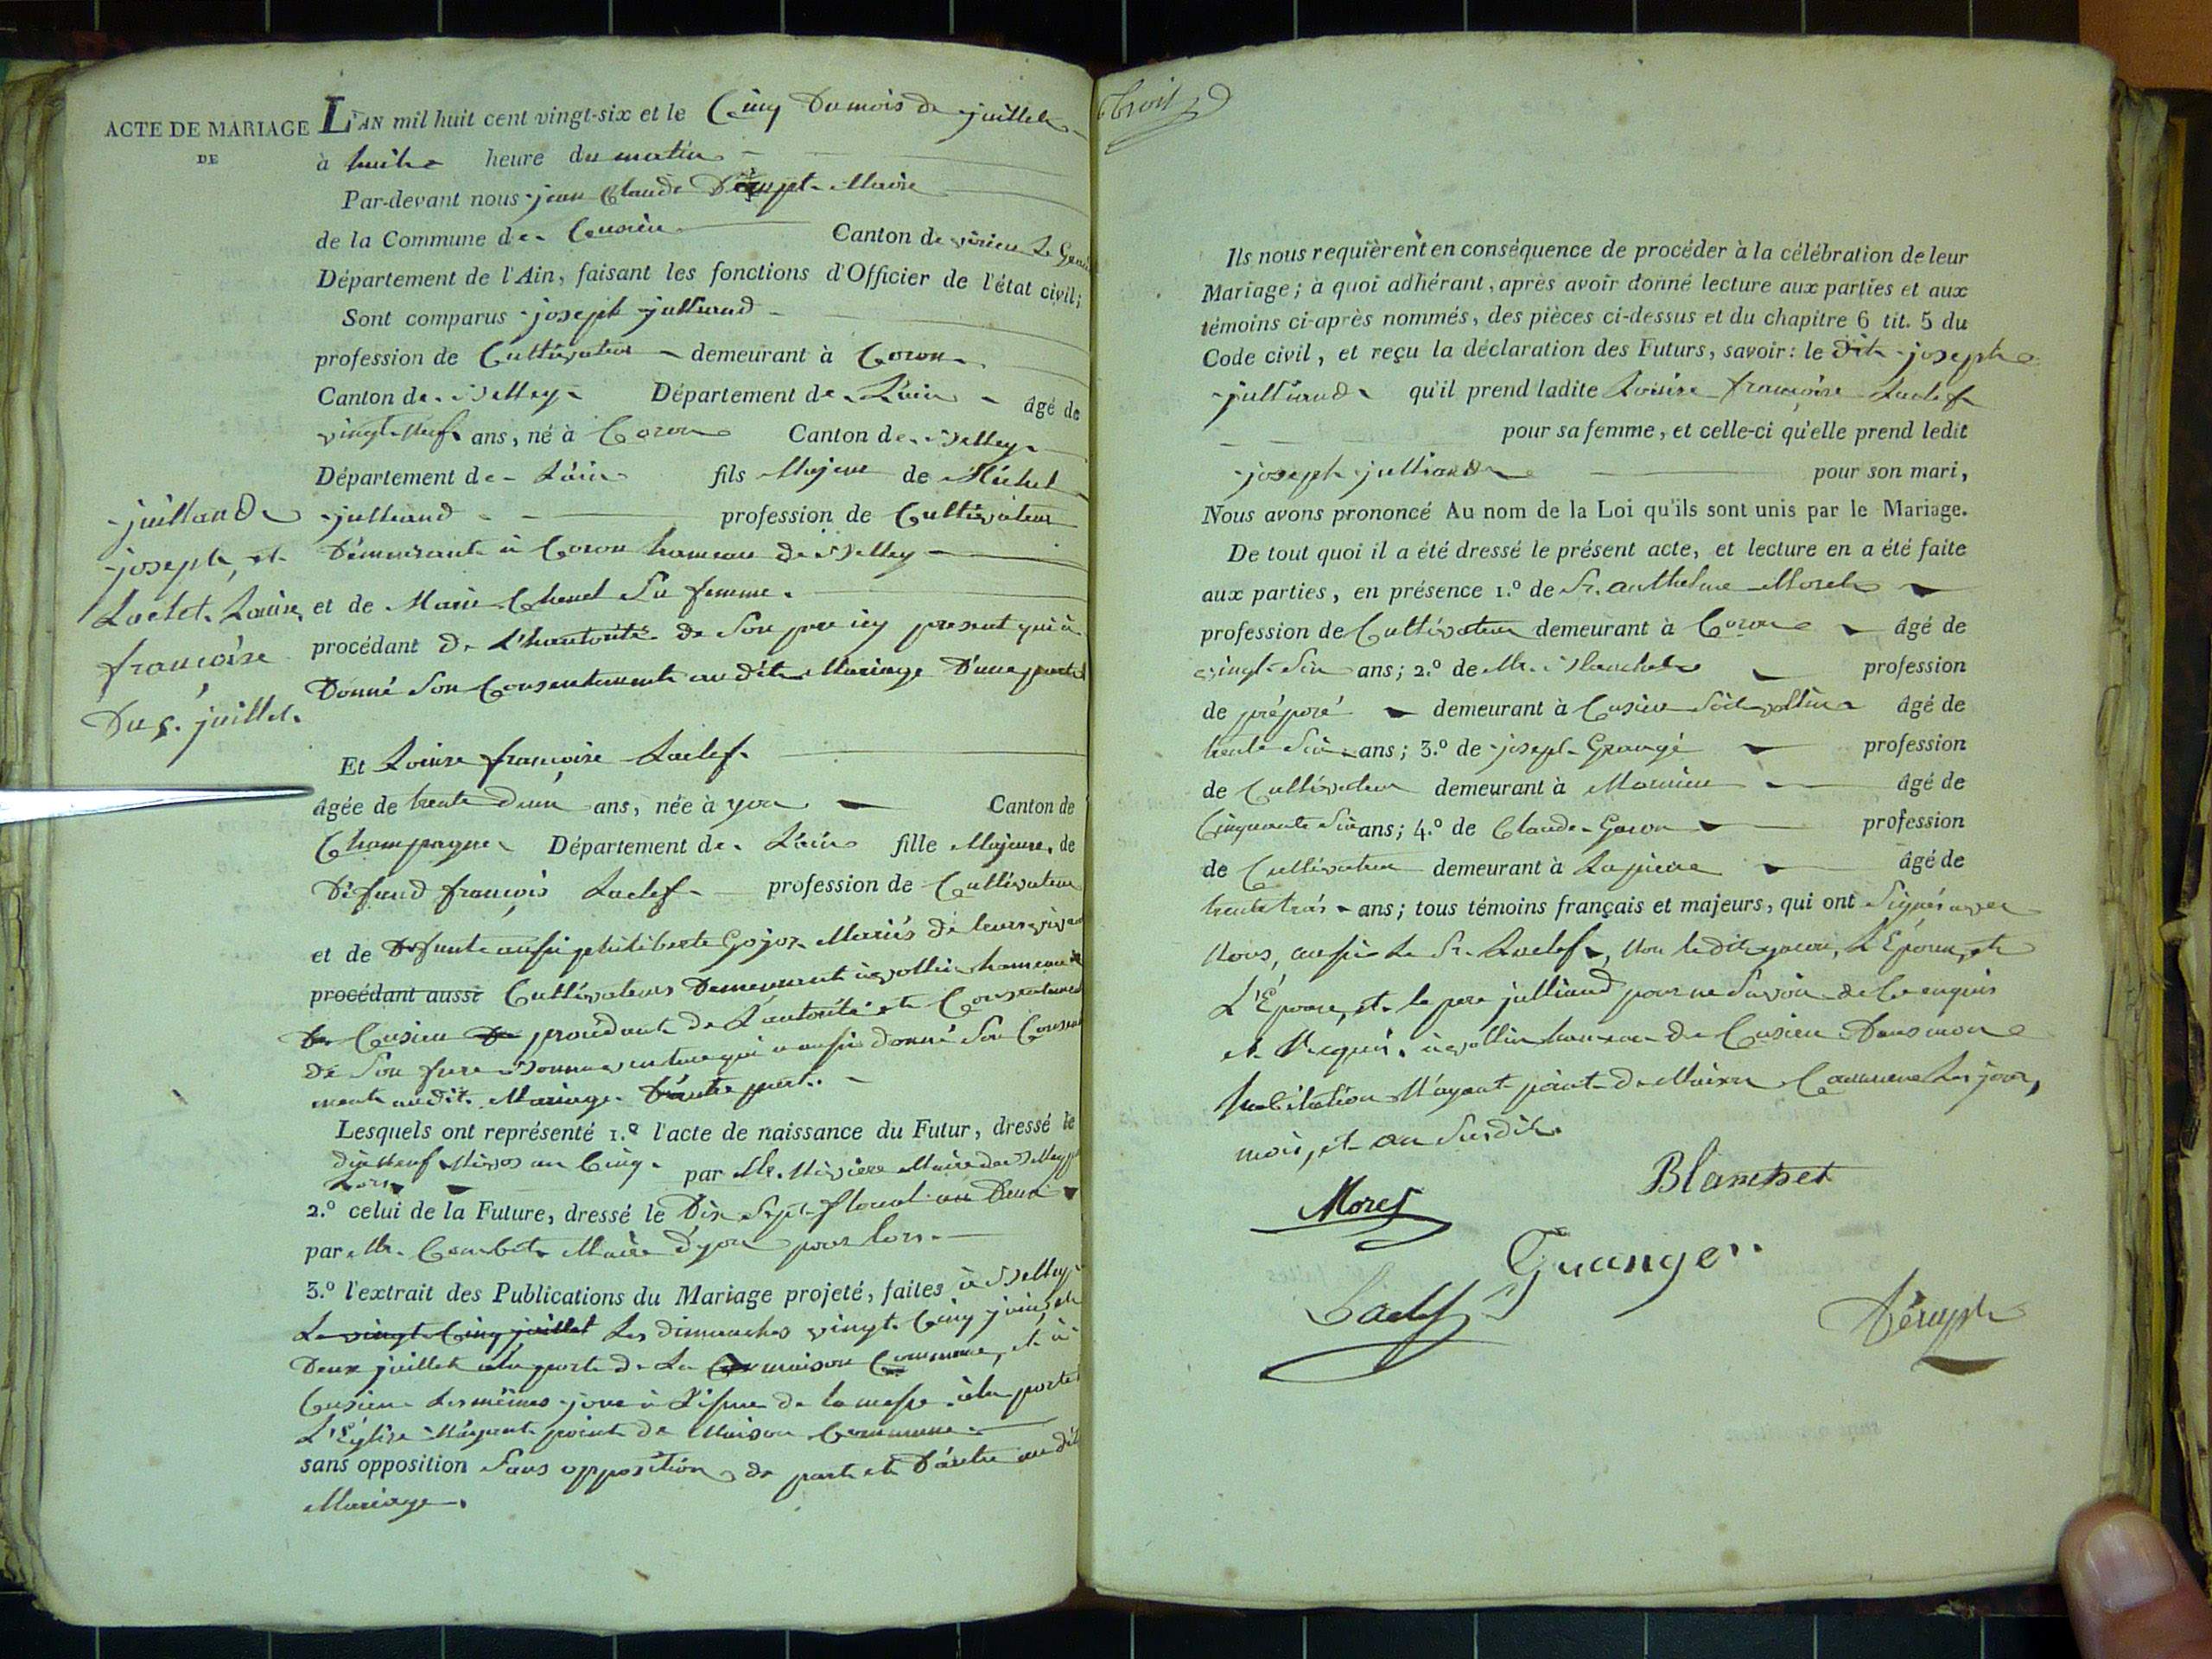 ACTE DE MARIAGE
DE
juilland
joseph, et
Laclet Louise
françoise
Du 5. juillet.
L'AN mil huit cent vingt-six et le Cinq Du mois de juillet
à huit heure du matin
Par-devant nous jean Claude Maire
de la Commune de Cusieu Canton de virieu Le Grand
Département de l'Ain, faisant les fonctions d'Officier de l'état civil;
Sont comparus joseph julliand
profession de Cultivateur demeurant à Coron
Canton de Belley Département de L'ain âgé de
vingt-Neuf ans, né à Coron Canton de Belley
Département de L'ain fils Majeur de Michel
julliand profession de Cultivateur
Demeurant à Coron hameau de Belley
et de Marie Chenel Sa femme.
procédant De L'hautorité de Son pere icy present qui à
Donné Son Consentement au dit Mariage D'une part
Et Louise françoise Laclef
âgée de trente Deux ans, née à yon Canton de
Champagne Département de L'ain fille Majeure de
Défund françois Laclef profession de Cultivateur
et de Defunte aussi philiberte Gojoz Mariés de leurs vivant
procédant aussi Cultivateurs Demeurant à vollin hameau de
De Cusieu De procédant de L'autorité et Consentement
de Son frere qui a aussi donné Son Consent
ment au dit Mariage D'autre part.
Lesquels ont représenté 1.º l'acte de naissance du Futur, dressé le
dix Neuf Nivos an Cinq par Mr. Maire de Belley
Lors
2.º celui de la Future, dressé le Dix Sept floreal an Deux
par Mr. Combet Maire d'yon pour lors.
3.º l'extrait des Publications du Mariage projeté, faites à Belley
Le vingt Cinq juillet Les dimanches vingt Cinq juin, et
Deux juillet à la porte de La Co maison Commune, et à
Cusieu Les mêmes jour à L'issue de la messe à la porte
L'Eglise N'ayant point de Maison Commune.
sans opposition Sans opposition de part et D'autre au dit
Mariage.
Ils nous requièrent en conséquence de procéder à la célébration de leur
Mariage; à quoi adhérant, après avoir donné lecture aux parties et aux
témoins ci-après nommés, des pièces ci-dessus et du chapitre 6 tit. 5 du
Code civil, et reçu la déclaration des Futurs, savoir: le dit joseph
julliand qu'il prend ladite Louise françoise Laclef
pour sa femme, et celle-ci qu'elle prend ledit
joseph julliand pour son mari,
Nous avons prononcé Au nom de la Loi qu'ils sont unis par le Mariage.
De tout quoi il a été dressé le présent acte, et lecture en a été faite
aux parties, en présence 1.º de Sr. anthelme Morel
profession de Cultivateur demeurant à Coron âgé de
vingt Six ans; 2.º de Mr. Blanchet profession
de préposé demeurant à Cusieu Soit vollin âgé de
trente Six ans; 3.º de joseph Grangé profession
de Cultivateur demeurant à âgé de
Cinquante Six ans; 4.º de Claude Gacon profession
de Cultivateur demeurant à Lapierre âgé de
trente trois ans; tous témoins français et majeurs, qui ont Signés avec
Nous, aussi Le Sr. Laclef, Non le dit gacon, L'Epoux, et
L'Epouse, et le pere julliand pour ne Savoir de Ce enquis
et Requis. à vollin hameau de Cusieu Dans mon
habitation N'ayant point de Maison Commune Les jour,
mois, et an Susdit.
Morel
Blanchet
Granger
Laclef